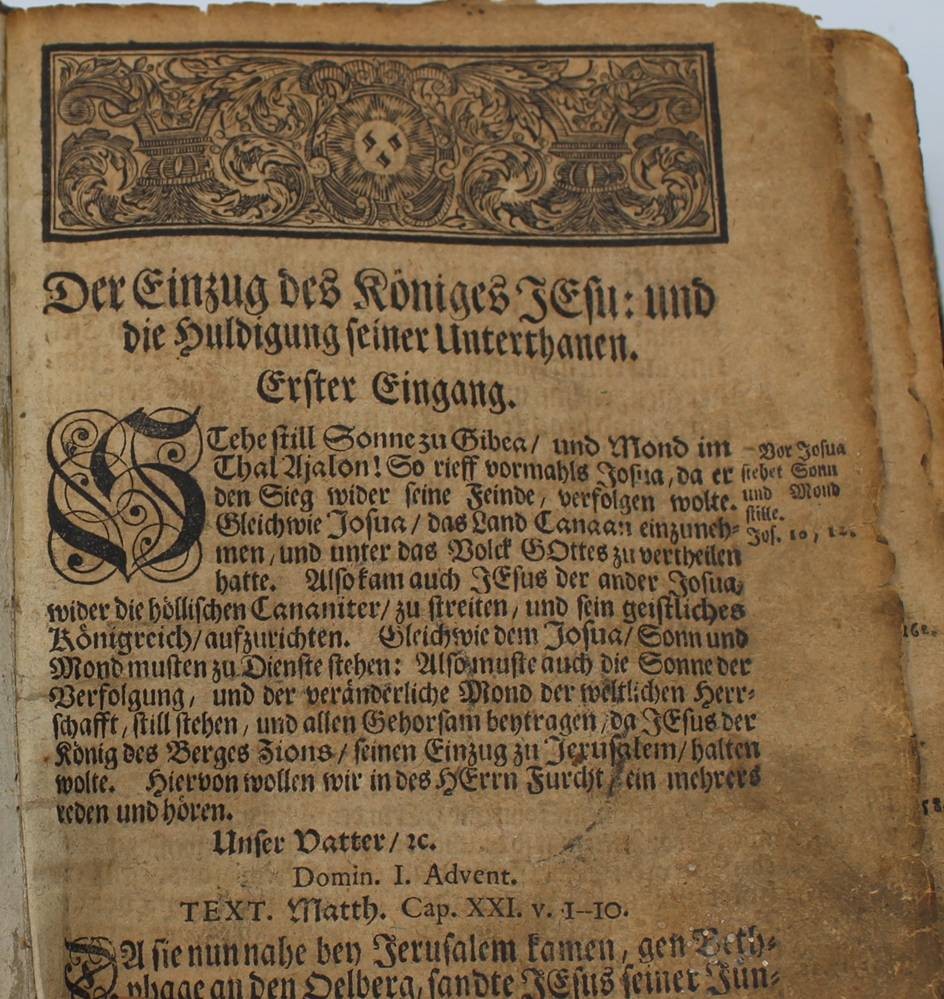 Der Einzug des Königes JEsu: und
die Huldigung seiner Unterthanen.
Erster Eingang.
STehe still Sonne zu Gibea/ und Mond im
Thal Ajalon! So rieff vormahls Josua, da er
den Sieg wider seine Feinde, verfolgen wolte.
Gleichwie Josua/ das Land Canaan einzuneh-
men, und unter das Volck GOttes zu vertheilen
hatte. Also kam auch JEsus der ander Josua,
wider die höllischen Cananiter/ zu streiten, und sein geistliches
Königreich/ aufzurichten. Gleichwie dem Josua/ Sonn und
Mond musten zu Dienste stehen: Also muste auch die Sonne der
Verfolgung, und der veränderliche Mond der weltlichen Herr-
schafft, still stehen, und allen Gehorsam beytragen, da JEsus der
König des Berges Zions/ seinen Einzug zu Jerusalem/ halten
wolte. Hiervon wollen wir in des HErrn Furcht/ ein mehrers
reden und hören.
Vor Josua
stehet Sonn
und Mond
stille.
Jos. 10, 12.
Unser Vatter/ ꝛc.
Domin. I. Advent.
TEXT. Matth. Cap. XXI. v. 1–10.
DA sie nun nahe bey Jerusalem kamen, gen Beth-
phage an den Oelberg, sandte JEsus seiner Jün-